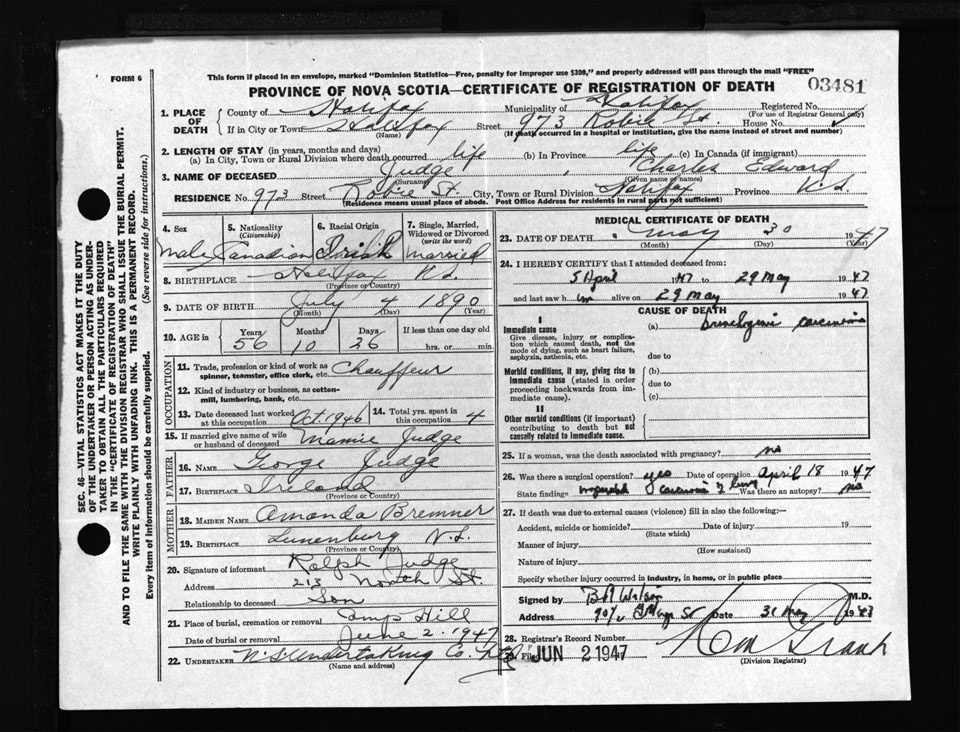 FORM 6
This form if placed in an envelope, marked "Dominion Statistics—Free, penalty for improper use $300," and properly addressed will pass through the mail "FREE"
PROVINCE OF NOVA SCOTIA—CERTIFICATE OF REGISTRATION OF DEATH
03481
1. PLACE OF DEATH
County of Halifax Municipality of Halifax Registered No.
(For use of Registrar General only)
If in City or Town Halifax Street 973 Robie St. House No.
(Name) (If death occurred in a hospital or institution, give the name instead of street and number)
2. LENGTH OF STAY (in years, months and days)
(a) In City, Town or Rural Division where death occurred life (b) In Province life (c) In Canada (if immigrant)
3. NAME OF DECEASED Judge, Charles Edward
(Surname) (Given name or names)
RESIDENCE No. 973 Street Robie St. City, Town or Rural Division Halifax Province N.S.
(Residence means usual place of abode. Post Office Address for residents in rural parts not sufficient)
SEC. 46—VITAL STATISTICS ACT MAKES IT THE DUTY
OF THE UNDERTAKER OR PERSON ACTING AS UNDER-
TAKER TO OBTAIN ALL THE PARTICULARS REQUIRED
IN THE "CERTIFICATE OF REGISTRATION OF DEATH"
AND TO FILE THE SAME WITH THE DIVISION REGISTRAR WHO SHALL ISSUE THE BURIAL PERMIT.
WRITE PLAINLY WITH UNFADING INK. THIS IS A PERMANENT RECORD.
Every item of information should be carefully supplied. (See reverse side for instructions.)
4. Sex 5. Nationality (Citizenship) 6. Racial Origin 7. Single, Married, Widowed or Divorced (write the word)
Male Canadian Irish Married
8. BIRTHPLACE Halifax N.S.
(Province or Country)
9. DATE OF BIRTH July 4 1890
(Month) (Day) (Year)
10. AGE in Years Months Days If less than one day old
56 10 26 hrs. or min.
OCCUPATION
11. Trade, profession or kind of work as spinner, teamster, office clerk, etc. Chauffeur
12. Kind of industry or business, as cotton-mill, lumbering, bank, etc.
13. Date deceased last worked at this occupation Oct. 1946 14. Total yrs. spent in this occupation 4
15. If married give name of wife or husband of deceased Mamie Judge
FATHER
16. NAME George Judge
17. BIRTHPLACE Ireland
(Province or Country)
MOTHER
18. MAIDEN NAME Amanda Bremner
19. BIRTHPLACE Lunenburg N.S.
(Province or Country)
20. Signature of informant Ralph Judge
Address 213 North St.
Relationship to deceased Son
21. Place of burial, cremation or removal Camp Hill
Date of burial or removal June 2. 1947
22. UNDERTAKER N.S. Undertaking Co. Ltd
(Name and address)
MEDICAL CERTIFICATE OF DEATH
23. DATE OF DEATH May 30 1947
(Month) (Day) (Year)
24. I HEREBY CERTIFY that I attended deceased from:
5 April 1947 to 29 May 1947
and last saw him alive on 29 May 1947
CAUSE OF DEATH
I
Immediate cause (a) bronchogenic carcinoma
Give disease, injury or complication which caused death, not the mode of dying, such as heart failure, asphyxia, asthenia, etc. due to
Morbid conditions, if any, giving rise to immediate cause (stated in order proceeding backwards from immediate cause). (b) due to (c)
II
Other morbid conditions (if important) contributing to death but not causally related to immediate cause.
25. If a woman, was the death associated with pregnancy? no
26. Was there a surgical operation? yes Date of operation April 18 1947
State findings carcinoma of lung Was there an autopsy? no
27. If death was due to external causes (violence) fill in also the following:—
Accident, suicide or homicide? Date of injury 19
(State which)
Manner of injury
(How sustained)
Nature of injury
Specify whether injury occurred in industry, in home, or in public place
Signed by M.D.
Address Date 31 May
28. Registrar's Record Number
29. Filed JUN 2 1947
(Division Registrar)